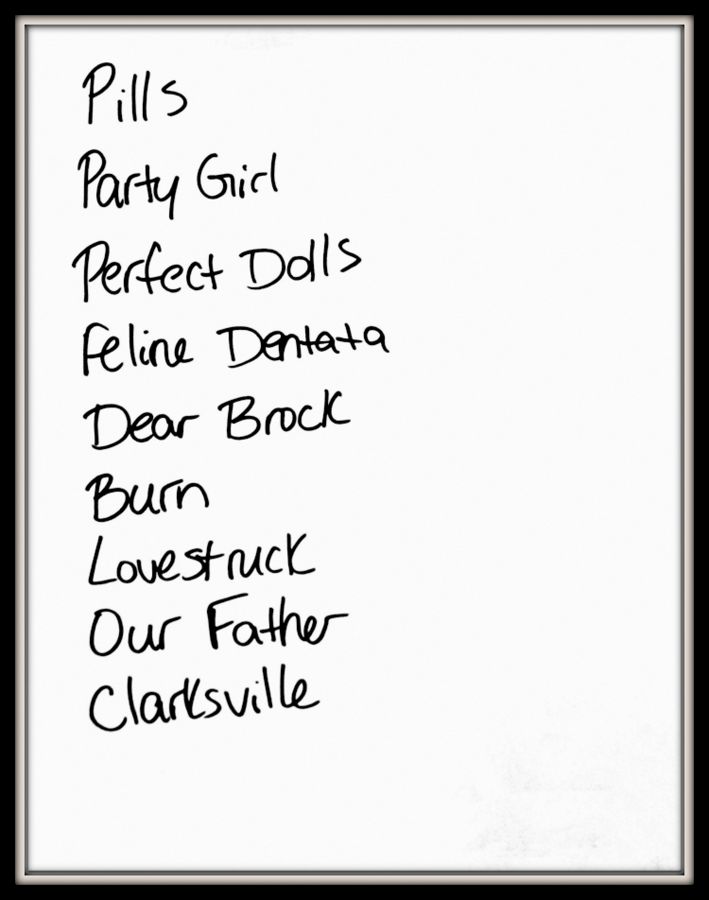 Pills
Party Girl
Perfect Dolls
Feline Dentata
Dear Brock
Burn
Lovestruck
Our Father
Clarksville